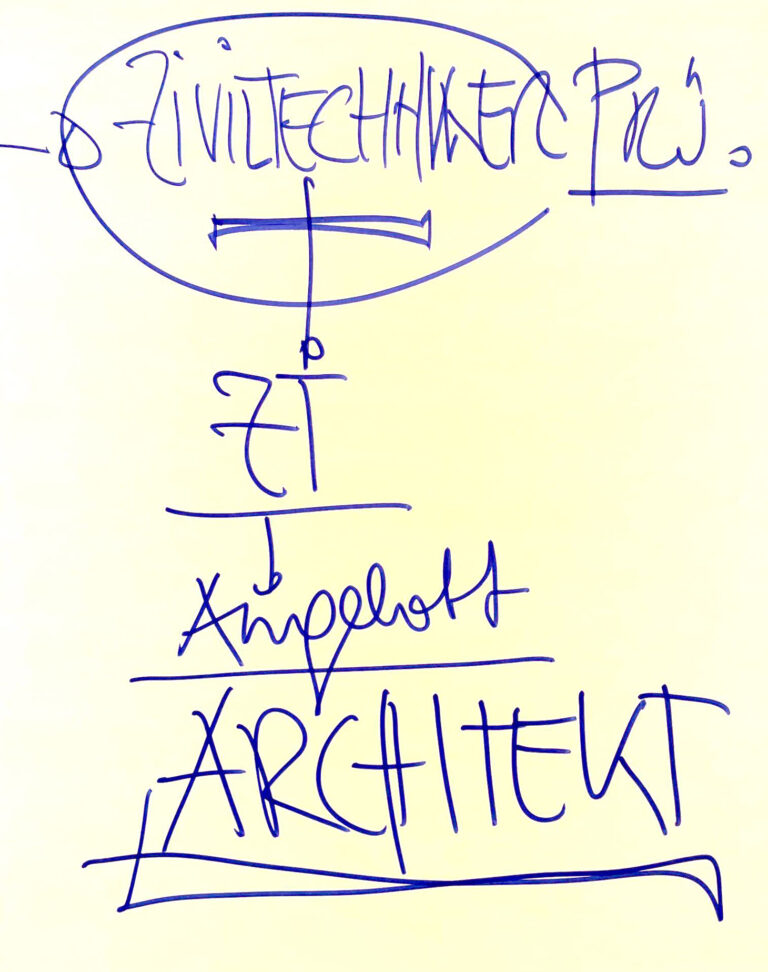 ZIVILTECHNIKER PRÜ.
ZT
Angebott
ARCHITEKT